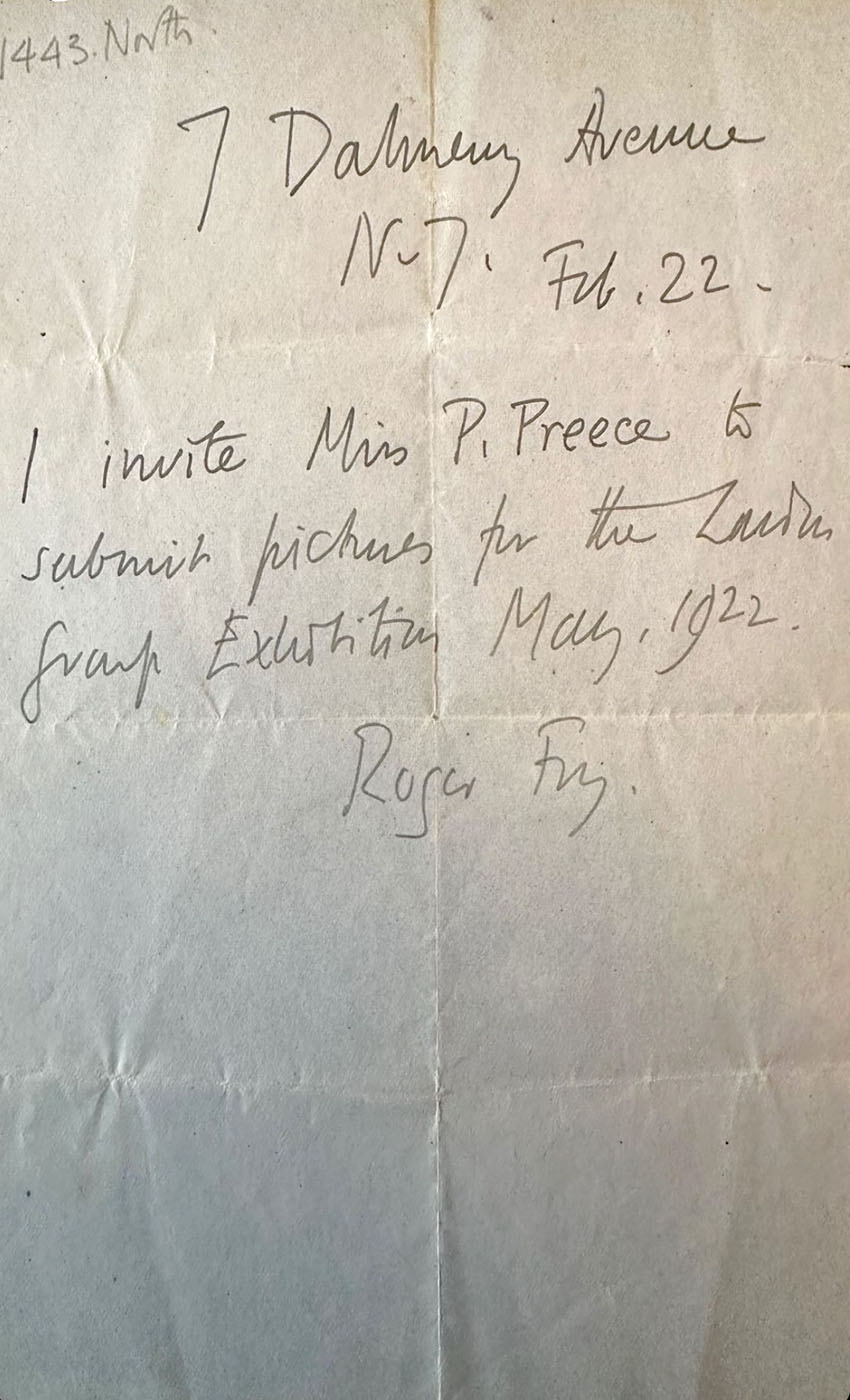 1443. North
7 Dalmeny Avenue
N.7. Feb. 22.
I invite Miss P. Preece to
submit pictures for the London
Group Exhibition May. 1922.
Roger Fry.